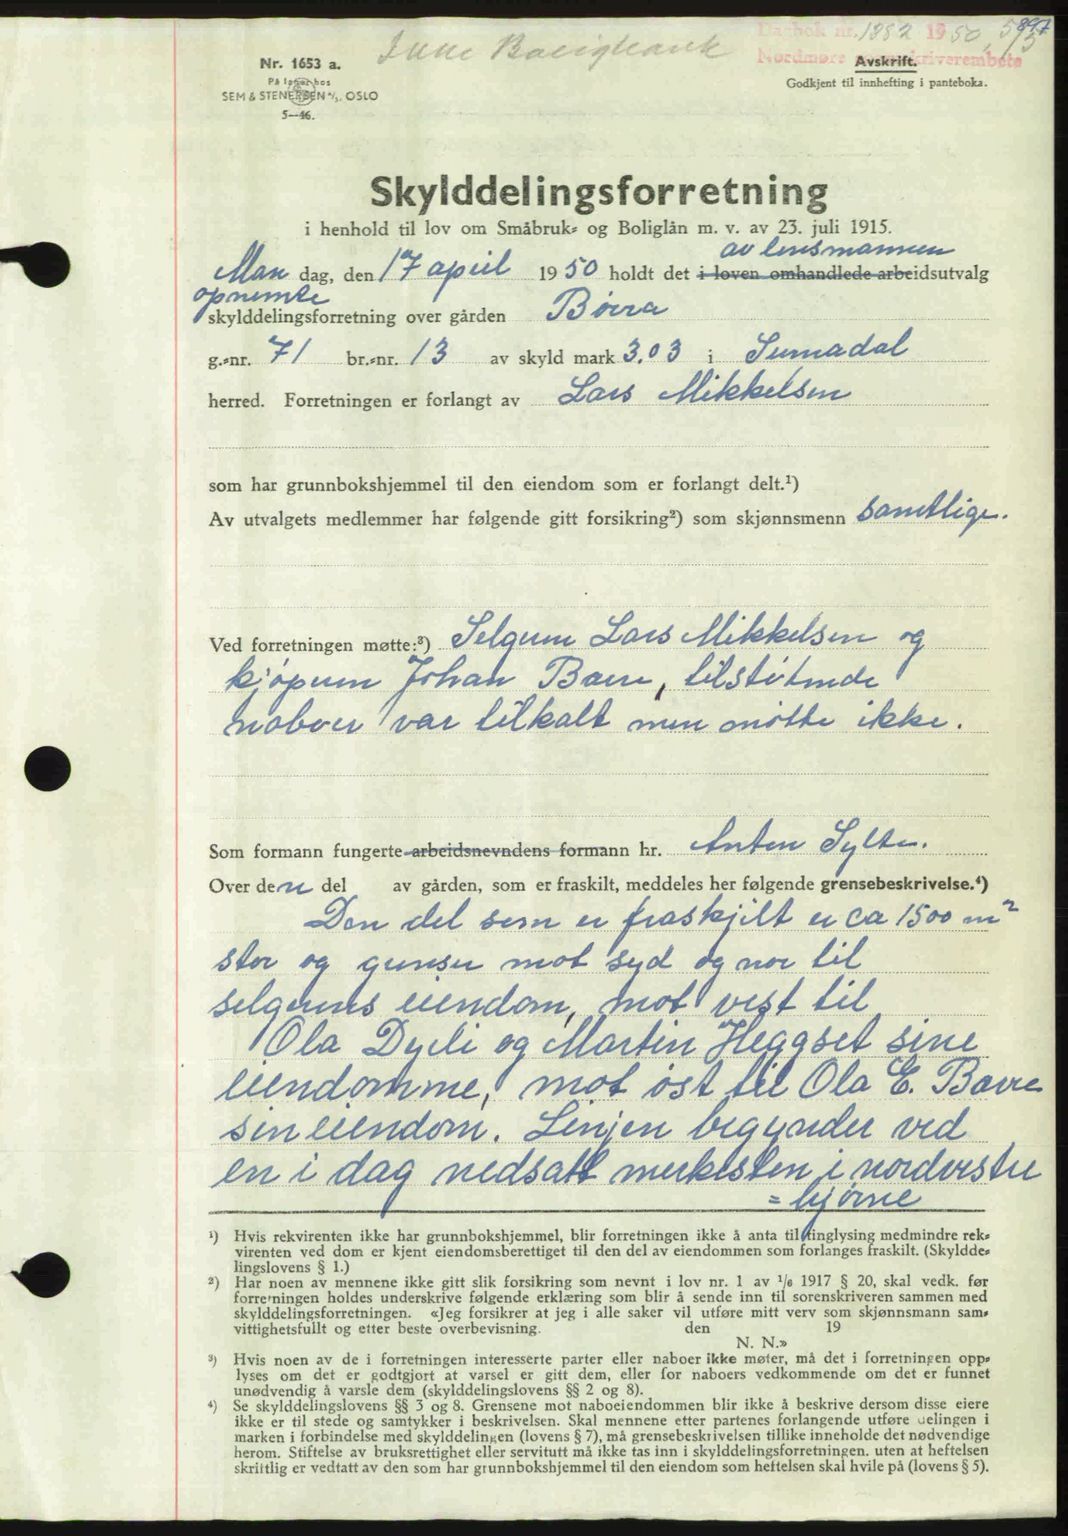 897
Dagbok nr. 1382 1950, 5/5
Nordmøre sorenskriverembete
Nr. 1653 a.
På lager hos
SEM & STENERSEN A/S, OSLO
5—46.
Avskrift.
Godkjent til innhefting i panteboka.
Skylddelingsforretning
i henhold til lov om Småbruk- og Boliglån m. v. av 23. juli 1915.
av lensmannen
Man dag, den 17 april 1950 holdt det i loven omhandlede arbeidsutvalg
opnemte
skylddelingsforretning over gården Bøvra
g.-nr. 71 br.-nr. 13 av skyld mark 3.03 i Surnadal
herred. Forretningen er forlangt av Lars Mikkelsen
som har grunnbokshjemmel til den eiendom som er forlangt delt.¹)
Av utvalgets medlemmer har følgende gitt forsikring²) som skjønnsmenn samtlige.
Ved forretningen møtte:³) Selgeren Lars Mikkelsen og
kjøperen Johan Bævre, tilstøtende
naboer var tilkalt men møtte ikke.
Som formann fungerte arbeidsnevndens formann hr. Anton Sylte.
Over den del av gården, som er fraskilt, meddeles her følgende grensebeskrivelse.⁴)
Den del som er fraskjilt er ca 1500 m²
stor og grenser mot syd og nor til
selgerens eiendom, mot vest til
Ola Dyrli og Martin Heggset sine
eiendomme, mot øst til Ola E. Bævre
sin eiendom. Linjen begynder ved
en i dag nedsatt merkesten i nordvestre
= hjørne
¹) Hvis rekvirenten ikke har grunnbokshjemmel, blir forretningen ikke å anta til tinglysing medmindre rek-
virenten ved dom er kjent eiendomsberettiget til den del av eiendommen som forlanges fraskilt. (Skyldde-
lingslovens § 1.)
²) Har noen av mennene ikke gitt slik forsikring som nevnt i lov nr. 1 av 1/6 1917 § 20, skal vedk. før
forretningen holdes underskrive følgende erklæring som blir å sende inn til sorenskriveren sammen med
skylddelingsforretningen. «Jeg forsikrer at jeg i alle saker vil utføre mitt verv som skjønnsmann sam-
vittighetsfullt og etter beste overbevisning. den 19
N. N.»
³) Hvis noen av de i forretningen interesserte parter eller naboer ikke møter, må det i forretningen opp-
lyses om det er godtgjort at varsel er gitt dem, eller for naboers vedkommende om det er funnet
unødvendig å varsle dem (skylddelingslovens §§ 2 og 8).
⁴) Se skylddelingslovens §§ 3 og 8. Grensene mot naboeiendommen blir ikke å beskrive dersom disse eiere
ikke er til stede og samtykker i beskrivelsen. Skal mennene etter partenes forlangende utføre delingen i
marken i forbindelse med skylddelingen (lovens § 7), må grensebeskrivelsen tillike inneholde det nødvendige
herom. Stiftelse av bruksrettighet eller servitutt må ikke tas inn i skylddelingsforretningen. uten at heftelsen
skriftlig er vedtatt av den som har grunnbokshjemmel til den eiendom som heftelsen skal hvile på (lovens § 5).